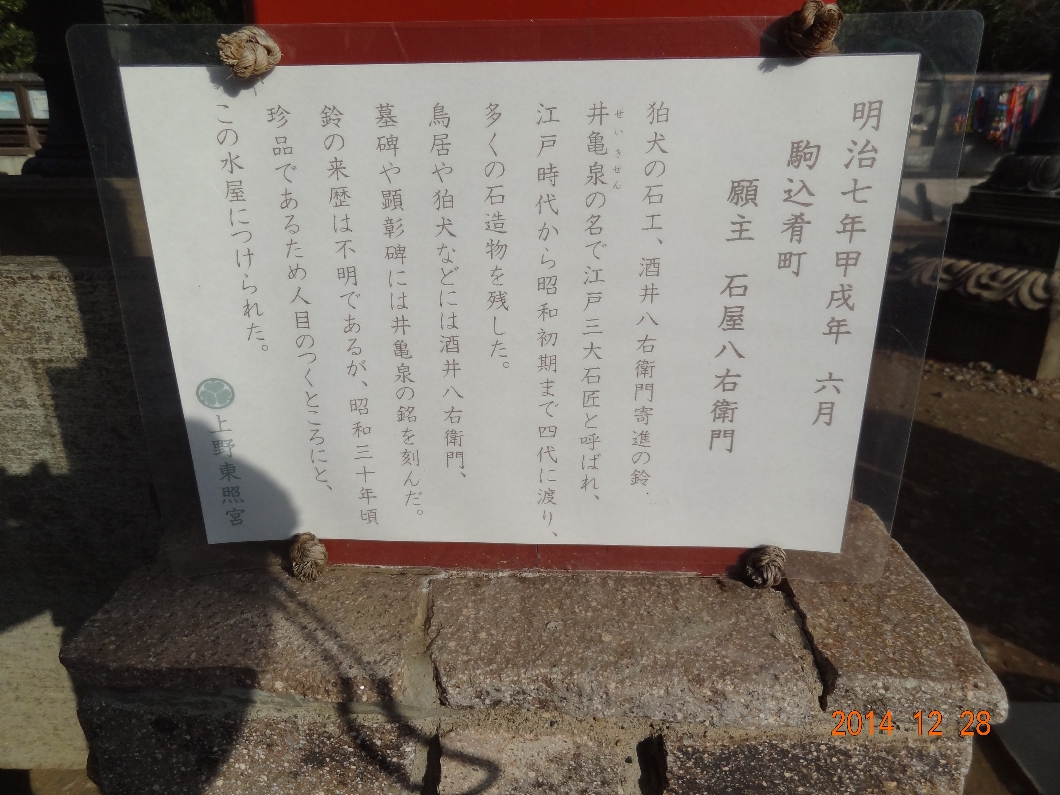 明治七年甲戌年　六月
駒込肴町
願主　石屋八右衛門
狛犬の石工、酒井八右衛門寄進の鈴
せいきせん
井亀泉の名で江戸三大石匠と呼ばれ、
江戸時代から昭和初期まで四代に渡り、
多くの石造物を残した。
鳥居や狛犬などには酒井八右衛門、
墓碑や顕彰碑には井亀泉の銘を刻んだ。
鈴の来歴は不明であるが、昭和三十年頃
珍品であるため人目のつくところにと、
この水屋につけられた。
上野東照宮
2014 12 28